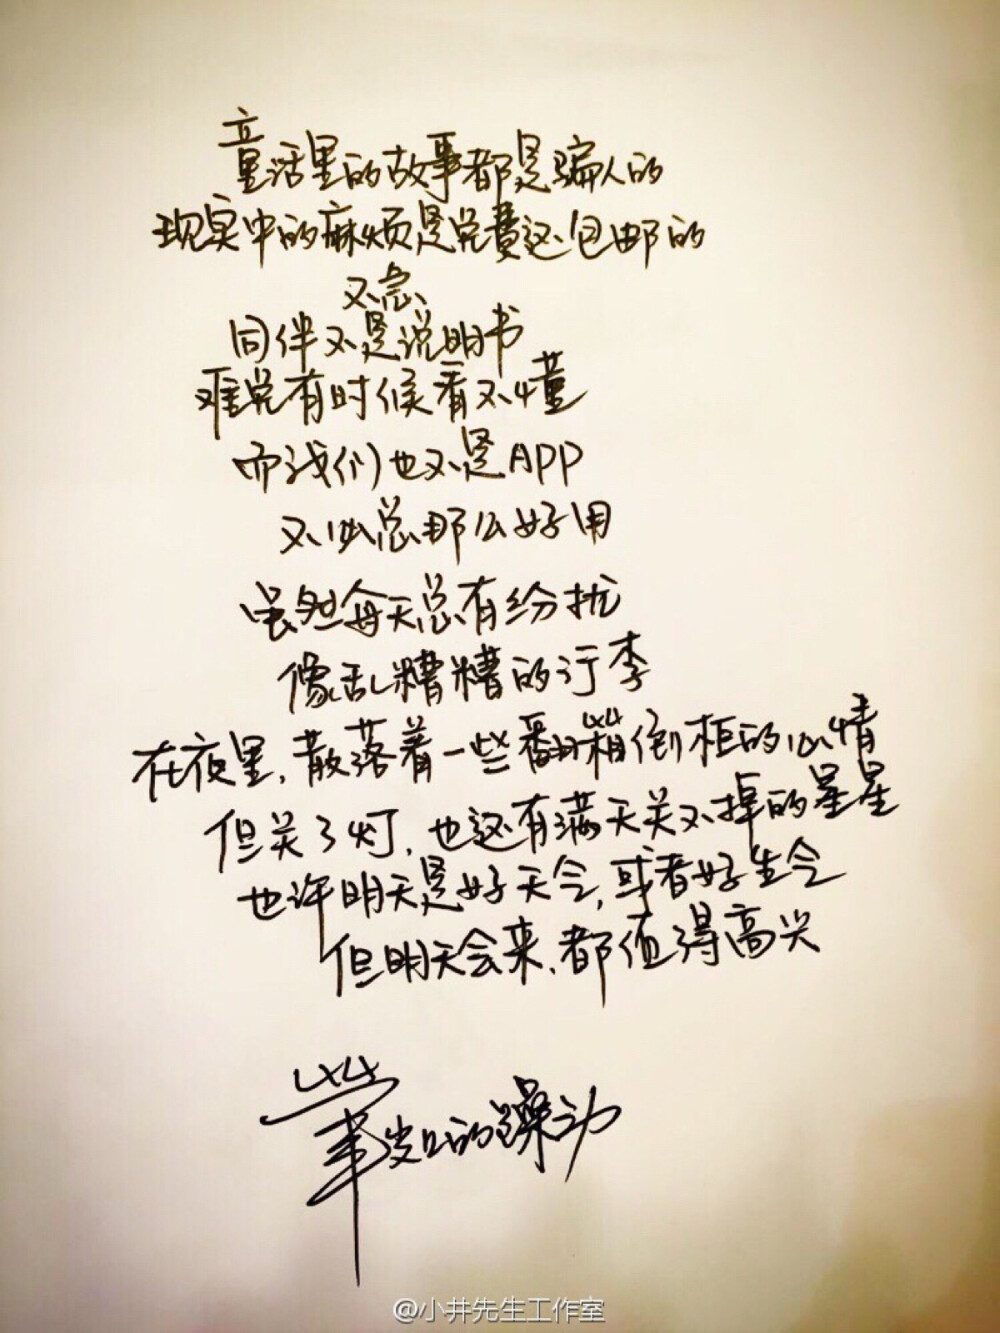 童话里的故事都是骗人的
现实中的麻烦是免费还包邮的
不急
同伴不是说明书
难免有时候看不懂
而我们也不是APP
不必总那么好用
虽然每天总有纷扰
像乱糟糟的行李
在夜里，散落着一些翻箱倒柜的心情
但关了灯，也还有满天关不掉的星星
也许明天是好天会，或者好生会
但明天会来，都值得高兴
的躁动
@小井先生工作室